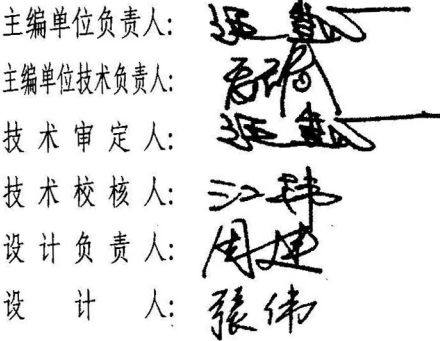 主编单位负责人:
主编单位技术负责人:
技术审定人:
技术校核人: 江韩
设计负责人: 周建
设计人: 張伟